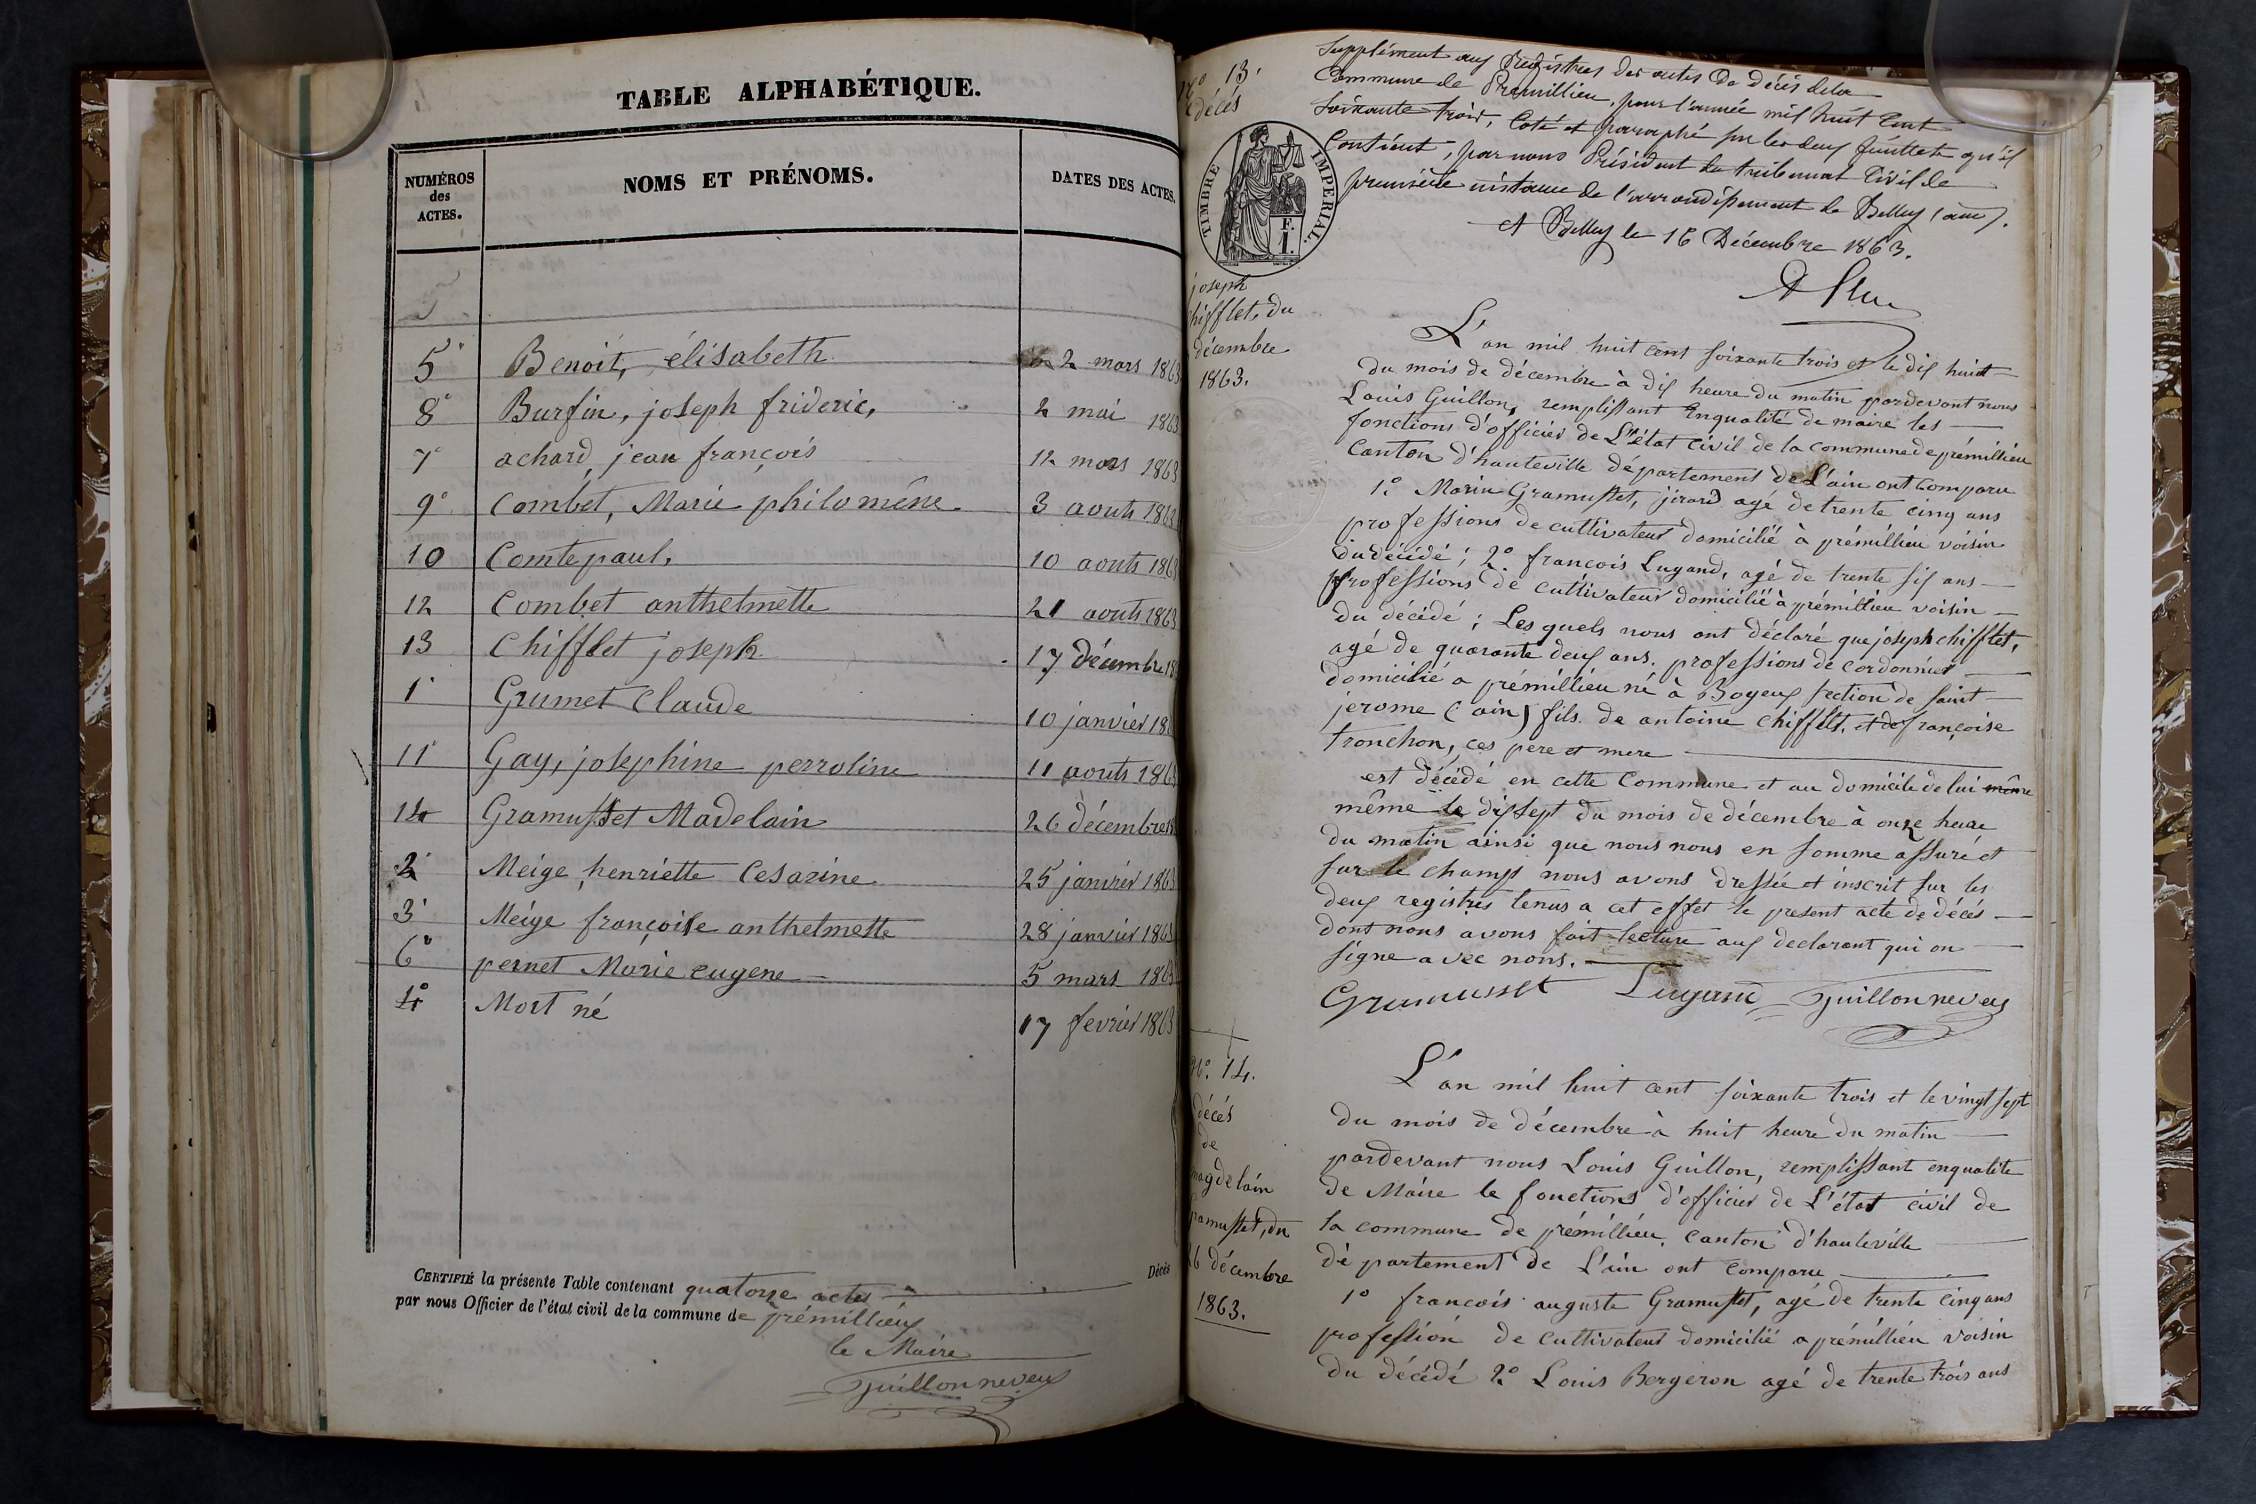 TABLE ALPHABÉTIQUE.
NUMÉROS des ACTES. NOMS ET PRÉNOMS. DATES DES ACTES.
5° Benoit, élisabeth 2 mars 1863
8° Burfin, joseph frideric, 2 mai 1863
7° achard, jean françois 12 mars 1863
9° Combet, Marie philomène 3 aouts 1863
10 Comte paul, 10 aouts 1863
12 Combet anthelmette 21 aouts 1863
13 Chifflet joseph 17 décembre 18
1° Grumet Claude 10 janvier 18
11° Gay, josephine perroline 11 aouts 1863
14 Gramusset Madelain 26 décembre
2° Meige henriette Cesarine 25 janvier 1863
3° Meige françoise anthelmette 28 janvier 1863
6° pernet Marie eugene 5 mars 1863
4° Mort né 17 fevrier 1863
Décès
CERTIFIÉ la présente Table contenant quatorze actes
par nous Officier de l'état civil de la commune de prémillieu
le Maire
Guillon neveu
N° 13.
décés
TIMBRE IMPERIAL.
joseph
hifflet, du
décembre
1863.
Supplément aux Registres des actes de décès de la
Commune de Prémillieu, pour l'année mil huit cent
soixante trois, Coté et paraphé sur les deux feuillets qu'il
Contient, par nous Président du tribunal Civil de
première instance de l'arrondissement de Belley (ain).
A Belley le 16 Décembre 1863.
L'an mil huit cent soixante trois et le dix huit
du mois de décembre à dix heure du matin pardevant nous
Louis Guillon, remplissant Enqualité de maire les
fonctions d'officier de L'état civil de la commune de prémillieu
Canton d'hauteville département de L'ain ont comparu
1° Marin Gramusset, jérard agé de trente cinq ans
professions de cultivateur domicilié à prémillieu voisin
du décédé ; 2° francois Lugand, agé de trente six ans
professions de cultivateur domicilié à prémillieu voisin
du décédé ; Les quels nous ont déclaré que joseph chifflet,
agé de quarante deux ans. professions de cordonnier
domicilié a prémillieu né à Bogeux section de saint
jerome (ain) fils. de antoine chifflet. et de françoise
tronchon, ces pere et mere
est décédé en cette Commune et au domicile de lui même
même le dissept du mois de décembre à onze heure
du matin ainsi que nous nous en somme assuré et
sur le champs nous avons dressée et inscrit sur les
deux registres tenus a cet effet le present acte de décés
dont nous avons fait lecture aux declarant qui on
signe avec nous.
Gramusset Lugand Guillon neveu
N°. 14.
décés
de
magdelain
ramusset, du
6 décembre
1863.
L'an mil huit cent soixante trois et le vingt sept
du mois de décembre à huit heure du matin
pardevant nous Louis Guillon, remplissant enqualite
de Maire le fonctions d'officier de L'état civil de
la commune de prémillieu, canton d'hauteville
département de L'ain ont comparu
1° francois auguste Gramusset, agé de trente cinq ans
profession de cultivateur domicilié a prémillieu voisin
du décédé 2° Louis Bergeron agé de trente trois ans